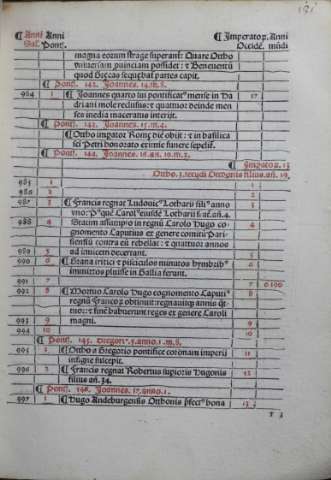 ¶ Anni Anni
Sal. Pont.
¶ Imperator. Anni
Occidē. mūdi
magna eorum strage superant: Quare Ottho
vniuersam puinciam possidet: & Beneuentū
quod Grecas sequebat partes capit.
¶ Pont. 142. Joannes. 14. m.8.
984 1 ¶ Joannes quarto sui pontificatus mense in Ha
driani mole reclusus: & quattuor deinde men
ses inedia maceratus interijt. 17
¶ Pont. 143. Joannes. 15. m.4.
¶ Ottho imperator Rome diē obijt: & in basilica
sci Petri honorato et imie funere sepelit.
¶ Pont. 144. Joannes. 16. an. 10. m.3.
Impator. 13
Ottho. 3. secūdi Othonis filius. añ. 19.
985 1 1
986 2 2
987 3 ¶ Francis regnat Ludouic Lotharii fili anno
vno: Carol eiusdē Lotharii
988 4 ¶ Statim assumpto in regnū Carolo Hugo co
gnomento Caputius ex genere comitū Pari
siensiū contra eū rebellat: & quattuor annos
989 5 ad inuicem decertant. 5
990 6 ¶ Grana tritici & pisciculos minutos hymbrib
immixtos pluisse in Gallia ferunt. 6
991 7 7 6190
992 8 ¶ Mortuo Carolo Hugo cognomento Caputi
regnū Francor obtinuit regnauitqz annis
tuor: & finē habuerunt reges ex genere Caroli
993 9 magni. 9
994 10 10
¶ Pont. 145. Gregori. 5. anno. 1. m.8.
995 1 ¶ Ottho a Gregorio pontifice coronam imperii
insigne suscepit. 11
996 2 ¶ Francis regnat Robertus supiotis Hugonis
filius an. 34. 12
¶ Pont. 146. Joannes. 17. anno. 1.
997 1 ¶ Hugo Andeburgensis Otthonis pfect bona 13